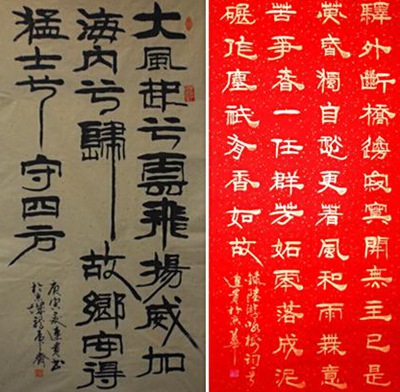 大風起兮雲飛揚威加
海内兮歸故鄉安得
猛士兮守四方
庚寅夏連貴书
驛外斷橋邊寂寞開無主已是
黄昏獨自愁更著風和雨無意
苦爭春一任群芳妬零落成泥
碾作塵祇有香如故
錄陸游咏梅词